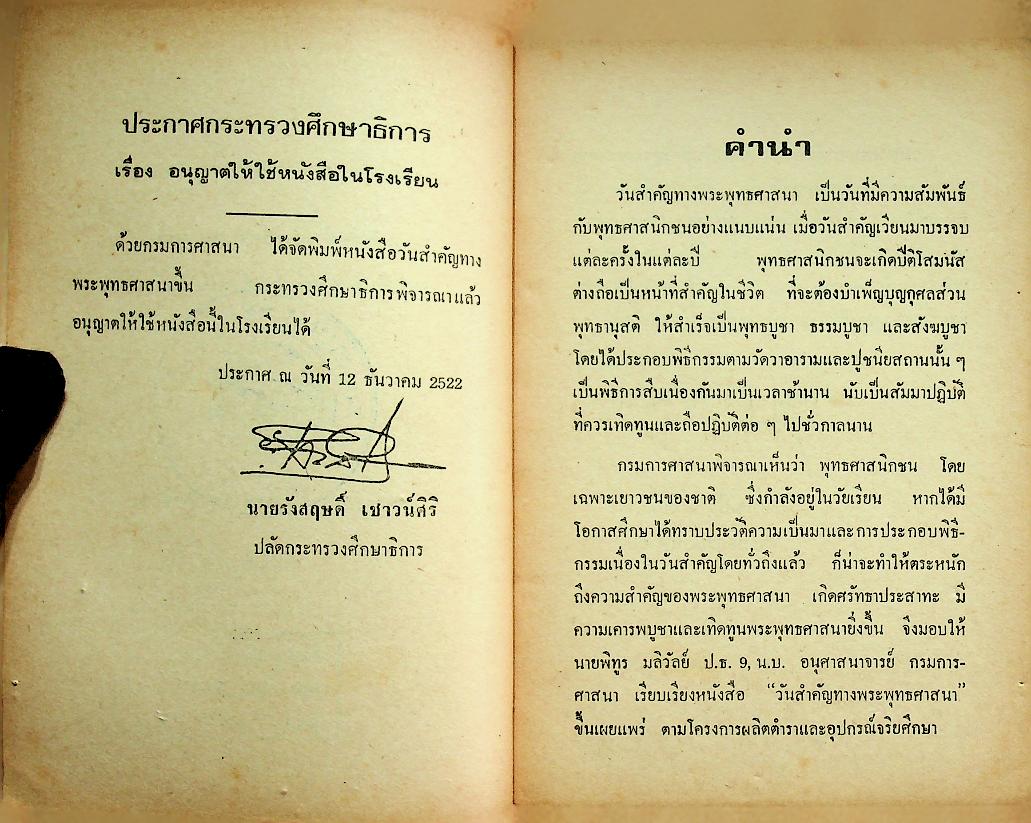 ประกาศกระทรวงศึกษาธิการ
เรื่อง อนุญาตให้ใช้หนังสือในโรงเรียน
ด้วยกรมการศาสนา ได้จัดพิมพ์หนังสือวันสำคัญทาง
พระพุทธศาสนาขึ้น กระทรวงศึกษาธิการพิจารณาแล้ว
อนุญาตให้ใช้หนังสือนี้ในโรงเรียนได้
ประกาศ ณ วันที่ 12 ธันวาคม 2522
นายรังสฤษดิ์ เชาวน์ศิริ
ปลัดกระทรวงศึกษาธิการ
คำนำ
วันสำคัญทางพระพุทธศาสนา เป็นวันที่มีความสัมพันธ์
กับพุทธศาสนิกชนอย่างแนบแน่น เมื่อวันสำคัญเวียนมาบรรจบ
แต่ละครั้งในแต่ละปี พุทธศาสนิกชนจะเกิดปีติโสมนัส
ต่างถือเป็นหน้าที่สำคัญในชีวิต ที่จะต้องบำเพ็ญบุญกุศลส่วน
พุทธานุสติ ให้สำเร็จเป็นพุทธบูชา ธรรมบูชา และสังฆบูชา
โดยได้ประกอบพิธีกรรมตามวัดวาอารามและปูชนียสถานนั้น ๆ
เป็นพิธีการสืบเนื่องกันมาเป็นเวลาช้านาน นับเป็นสัมมาปฏิบัติ
ที่ควรเทิดทูนและถือปฏิบัติต่อ ๆ ไปชั่วกาลนาน
กรมการศาสนาพิจารณาเห็นว่า พุทธศาสนิกชน โดย
เฉพาะเยาวชนของชาติ ซึ่งกำลังอยู่ในวัยเรียน หากได้มี
โอกาสศึกษาได้ทราบประวัติความเป็นมาและการประกอบพิธี-
กรรมเนื่องในวันสำคัญโดยทั่วถึงแล้ว ก็น่าจะทำให้ตระหนัก
ถึงความสำคัญของพระพุทธศาสนา เกิดศรัทธาประสาทะ มี
ความเคารพบูชาและเทิดทูนพระพุทธศาสนายิ่งขึ้น จึงมอบให้
นายพิทูร มลิวัลย์ ป.ธ. 9, น.บ. อนุศาสนาจารย์ กรมการ-
ศาสนา เรียบเรียงหนังสือ “วันสำคัญทางพระพุทธศาสนา”
ขึ้นเผยแพร่ ตามโครงการผลิตตำราและอุปกรณ์จริยศึกษา